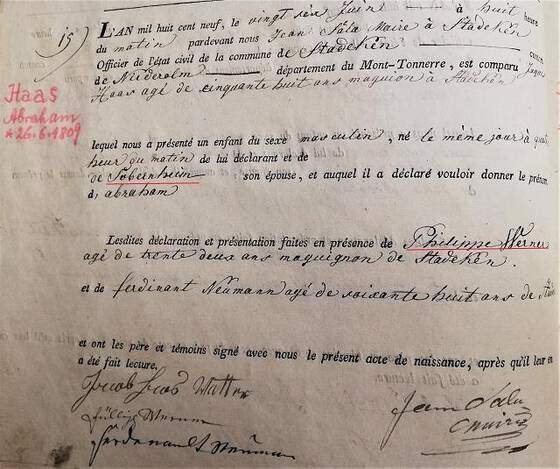 15)
L'AN mil huit cent neuf, le vingt six Juin à huit heure
du matin pardevant nous Jean Sala Maire à Stadeken
Officier de l'état civil de la commune de Stadeken canton
de Niederolm département du Mont-Tonnerre, est comparu
Haas agé de cinquante huit ans maquion à Stadeken
Haas
Abraham
* 26.6.1809
lequel nous a présenté un enfant du sexe masculin, né le même jour à
heur du matin de lui déclarant et de
de Sobernheim son épouse, et auquel il a déclaré vouloir donner le prénom
d, abraham
Lesdites déclaration et présentation faites en présence de Philippe Werner
agé de trente deux ans maquignon de Stadeken.
et de ferdinant Neumann agé de soixante huit ans de
et ont les père et témoins signé avec nous le présent acte de naissance, après qu'il leur en
a été fait lecture.
Jean Sala